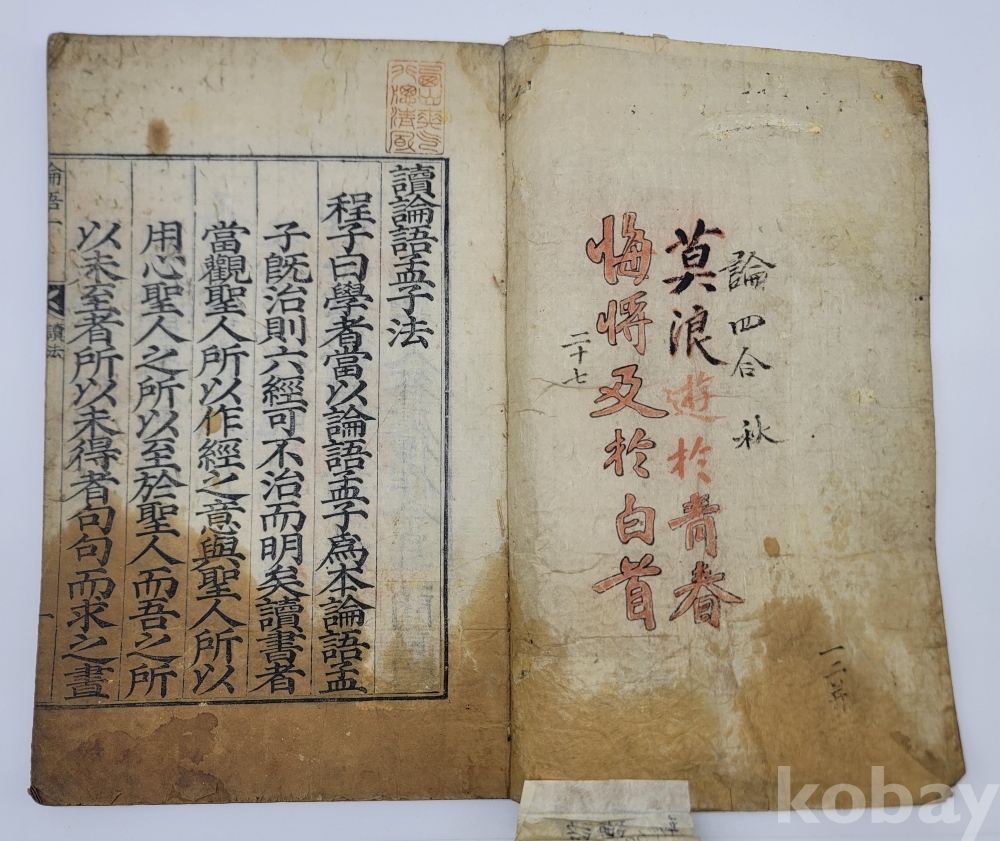 論四合 秋
莫浪遊於青春
悔將及於白首
二十七
讀論語孟子法
程子曰學者當以論語孟子爲本論語孟
子旣治則六經可不治而明矣讀書者
當觀聖人所以作經之意與聖人所以
用心聖人之所以至於聖人而吾之所
以未至者所以未得者句句而求之晝
論語一
讀法
kobay